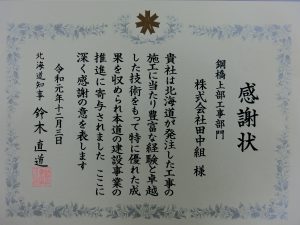 感謝状
鋼橋上部工事部門
株式会社田中組 様
貴社は北海道が発注した工事の
施工に当たり豊富な経験と卓越
した技術をもって特に優れた成
果を収められ本道の建設事業の
推進に寄与されました ここに
深く感謝の意を表します
令和元年十二月三日
北海道知事 鈴木直道